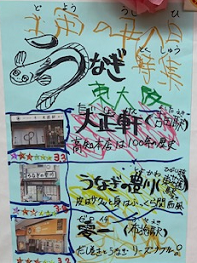 どようのうしのひ
土用の丑の日
特集
うなぎ
東大阪
大正軒
高知本店は100年の歴史
3.3
うなぎの豊川
皮はサクッと身はふっくら関西風
3.3
雲一(布施駅)
だし巻きとうなぎリーズナブル
3.2